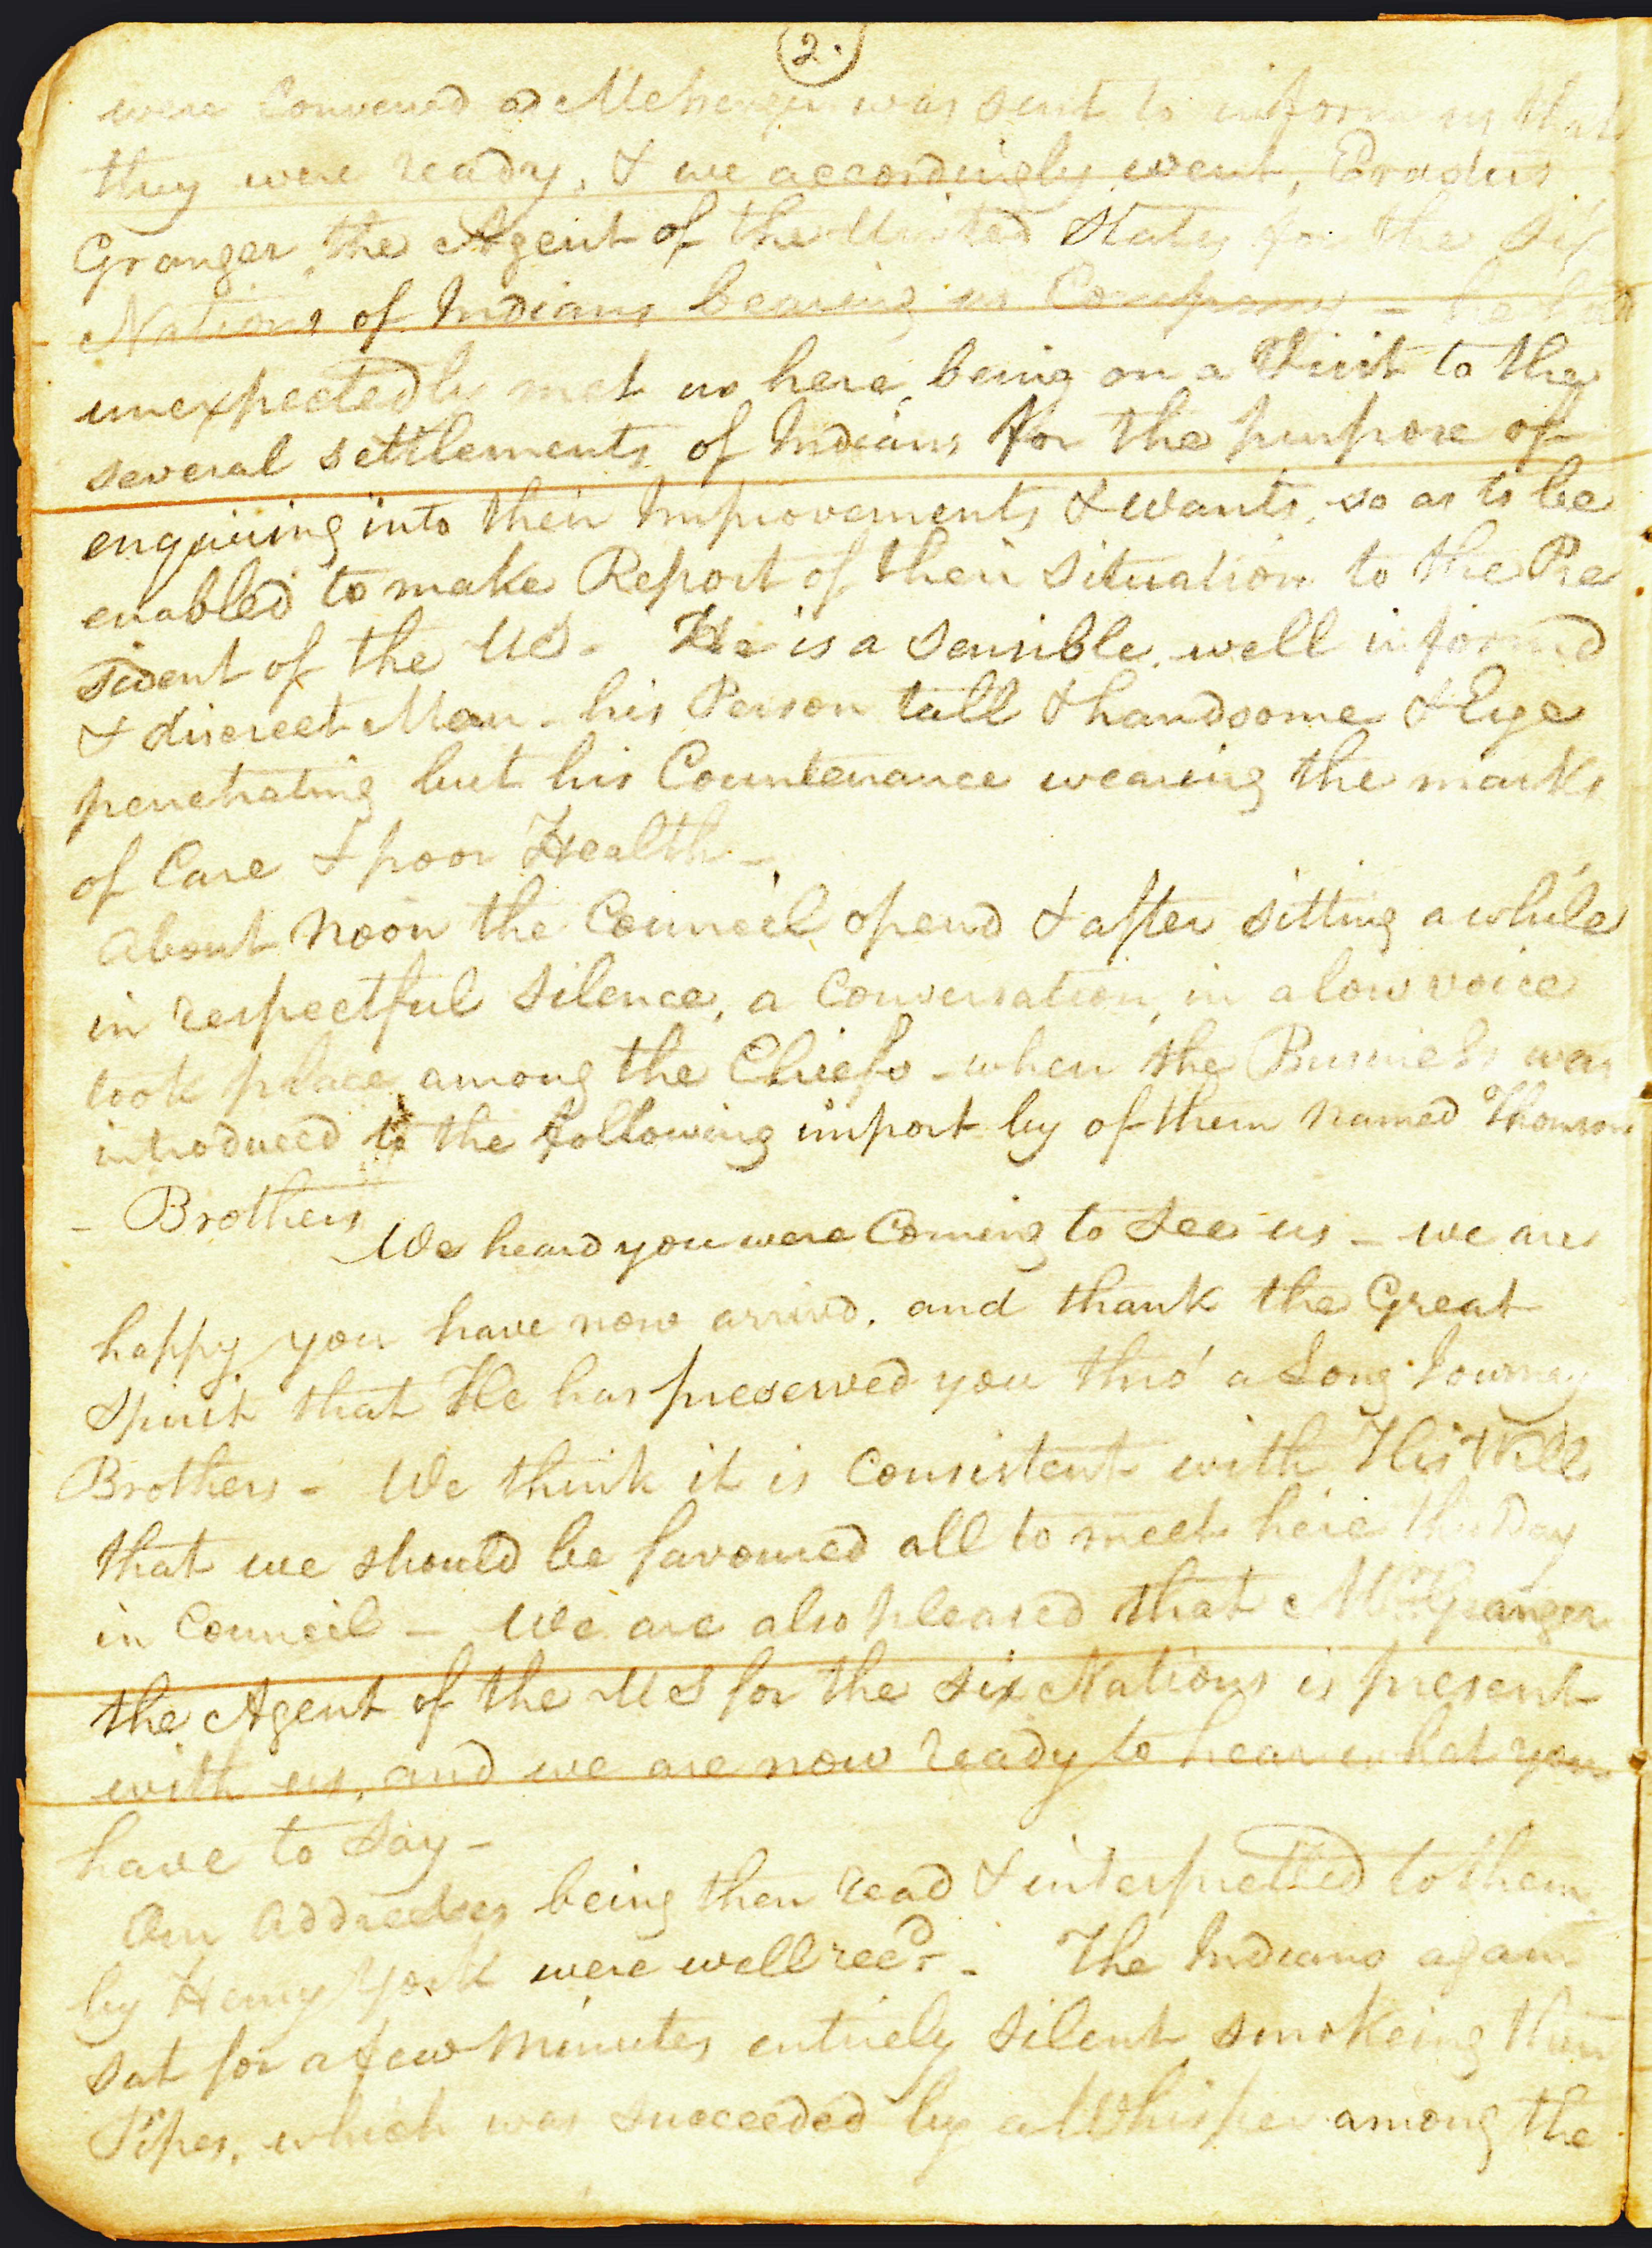 2.
were Convened a Messenger was sent to inform us that
they were ready, & we accordingly went, Erastus
Granger, the Agent of the United States for the Six
Nations of Indians bearing us Company - he had
unexpectedly met us here, being on a Visit to the
several settlements of Indians for the purpose of
enquiring into their Improvements & wants, so as to be
enabled to make Report of their situation to the Pre
sident of the US - He is a sensible, well informed
& discreet Man - his Person tall & handsome & Eye
penetrating but his Countenance wearing the marks
of Care & poor Health -
About Noon the Council opend & after sitting a while
in respectful silence, a Conversation, in a low voice
took place among the Chiefs - when the Business was
introduced to the following import by of them named Thomson
- Brothers
We heard you were Coming to See us - we are
happy you have now arrivd, and thank the Great
Spirit that He has preserved you thro' a Long Journey
Brothers - We think it is Consistent with His Will
that we should be favoured all to meet here this Day
in Council - We are also pleased that Granger
the Agent of the US for the six Nations is present
with us, and we are now ready to hear what you
have to Say -
Our Addresses being then read & interpretted to them
by Henry York were well recd. - The Indians again
sat for a few Minutes entirely silent smokeing their
Pipes, which was succeeded by a Whisper among the